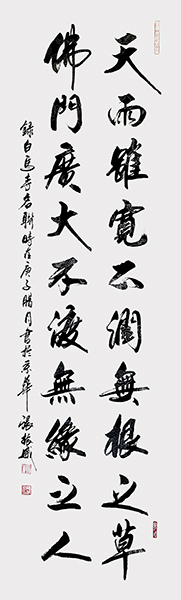 天雨雖寬不潤無根之草
佛門廣大不渡無緣之人
錄白馬寺古聯時在庚子腊月書於京華張振威